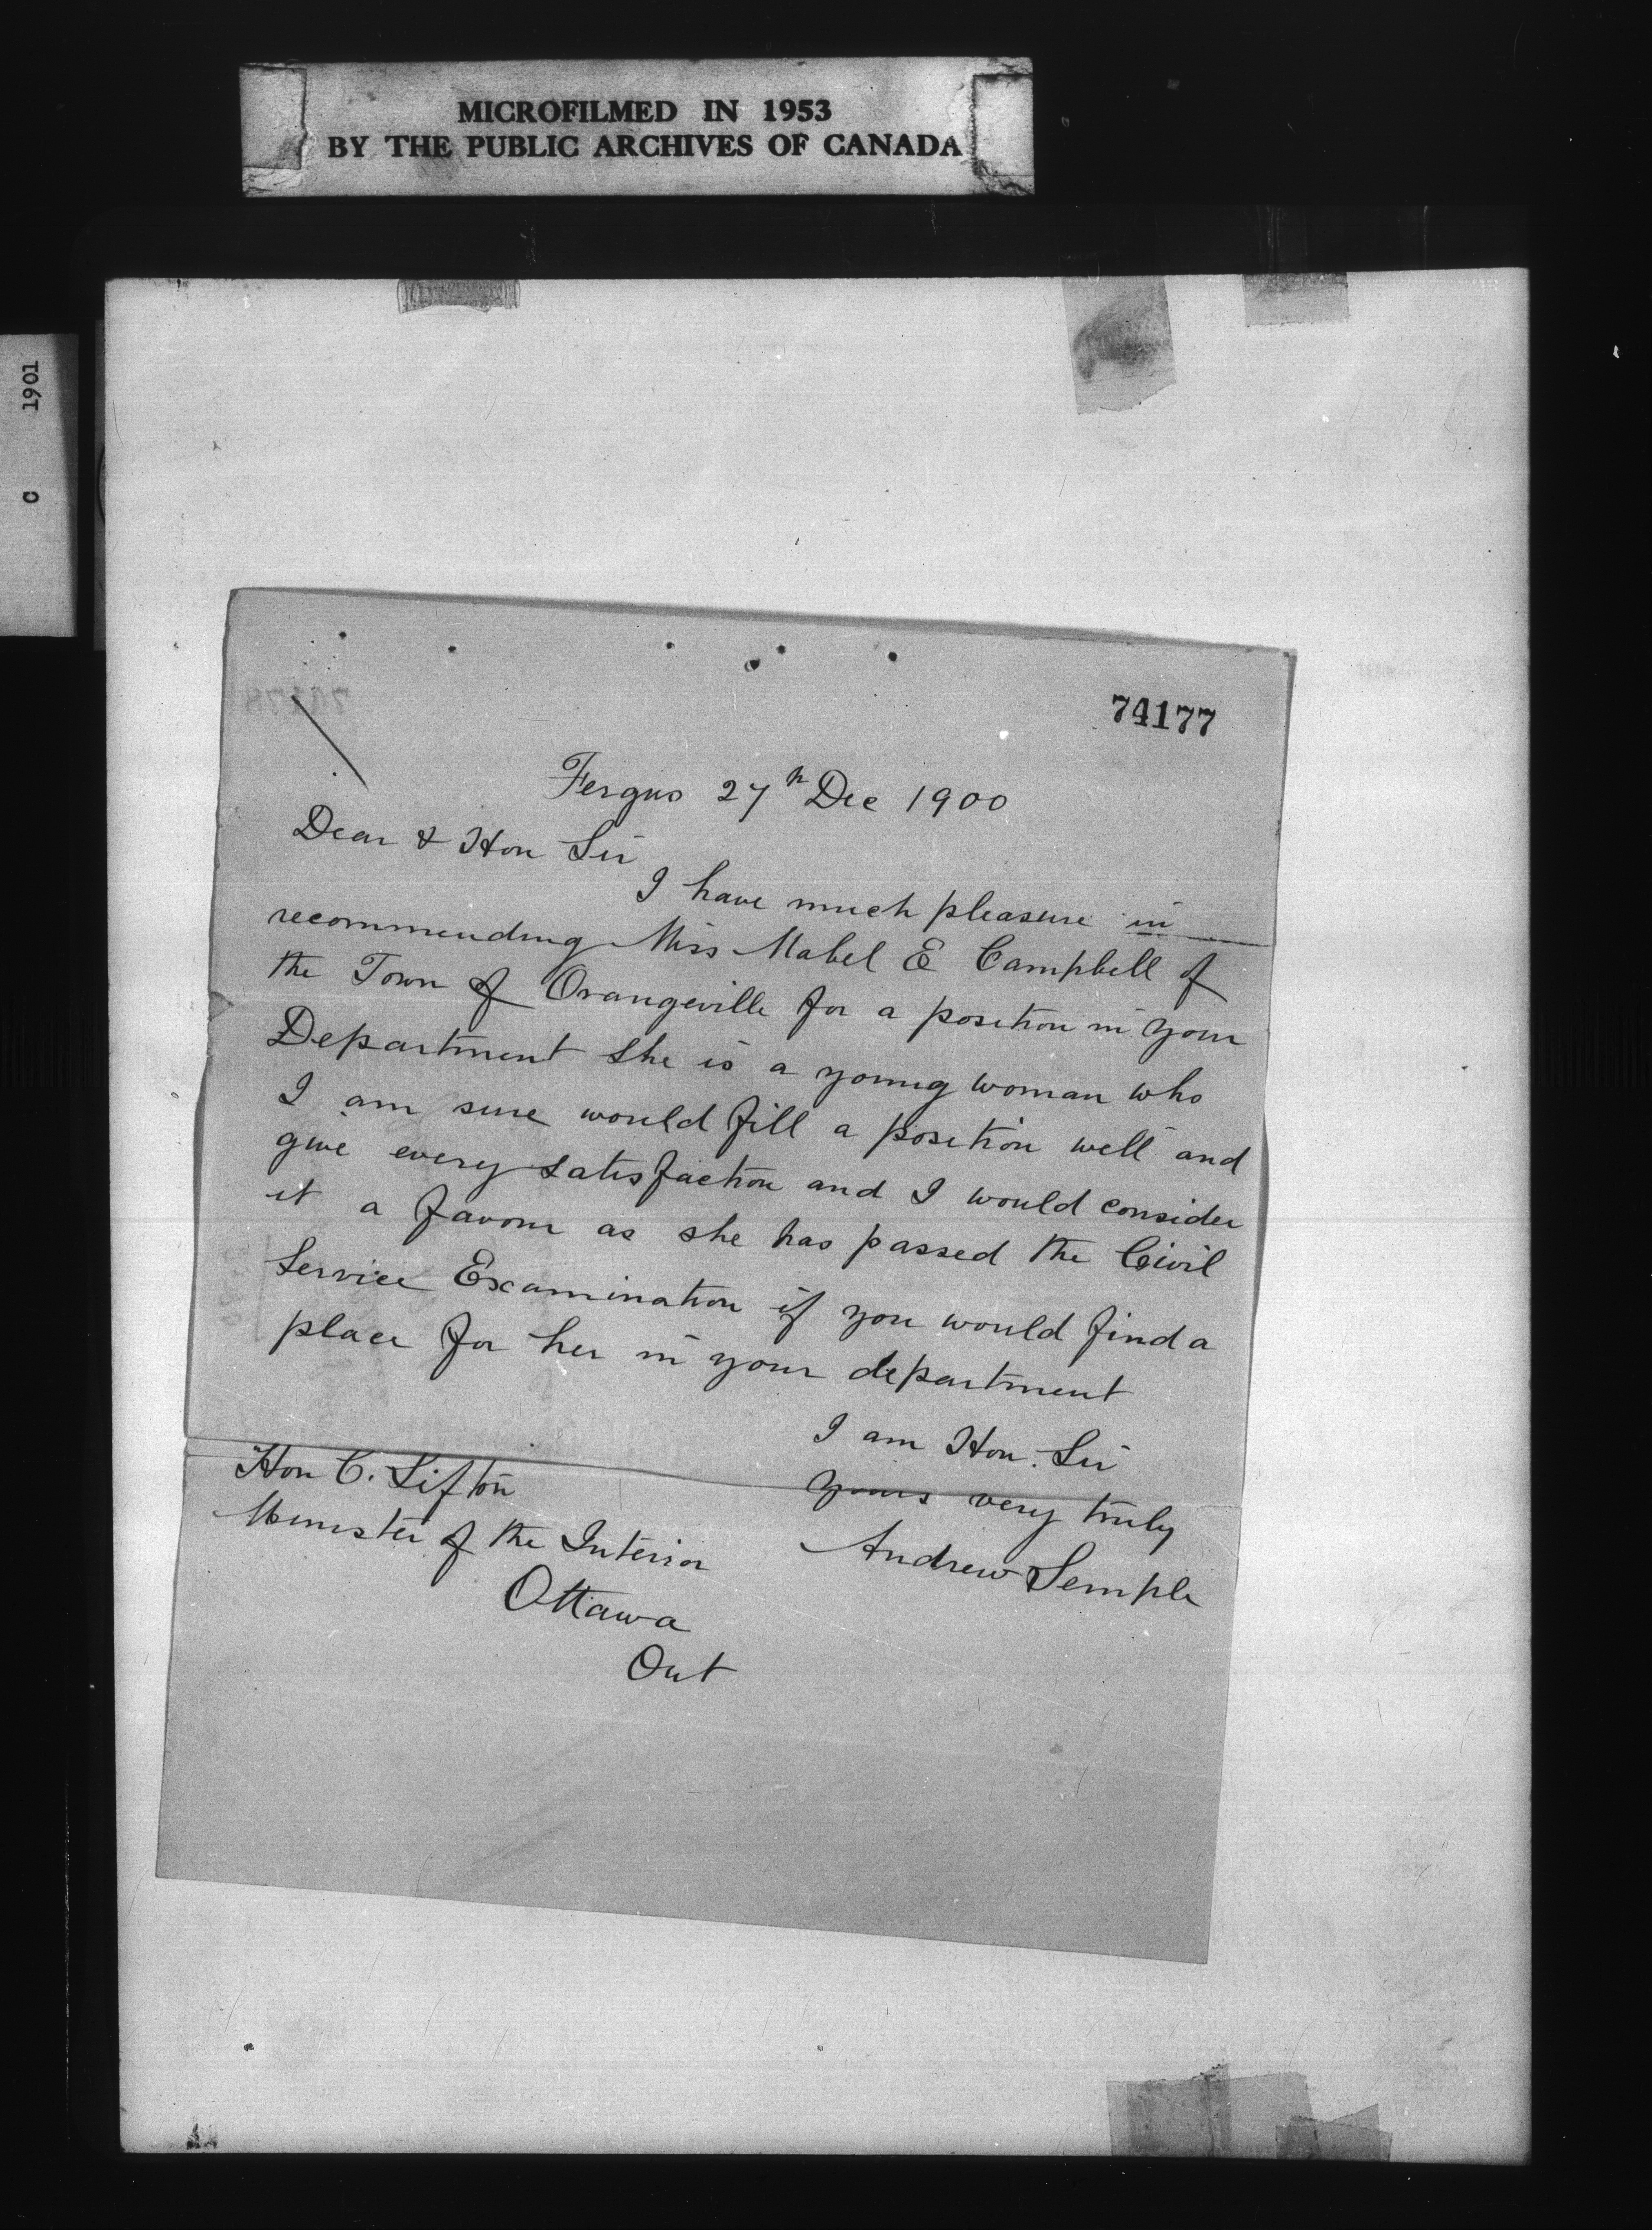 MICROFILMED IN 1953
BY THE PUBLIC ARCHIVES OF CANADA
C 1901
74177
Fergus 27th Dec 1900
Dear & Hon Sir
I have much pleasure in
recommending Miss Mabel E Campbell of
the Town of Orangeville for a position in your
Department She is a young woman who
I am sure would fill a position well and
give every satisfaction and I would consider
it a favour as she has passed the Civil
Service Examination if you would find a
place for her in your department
I am Hon. Sir
yours very truly
Andrew Semple
Hon C. Sifton
Minister of the Interior
Ottawa
Ont